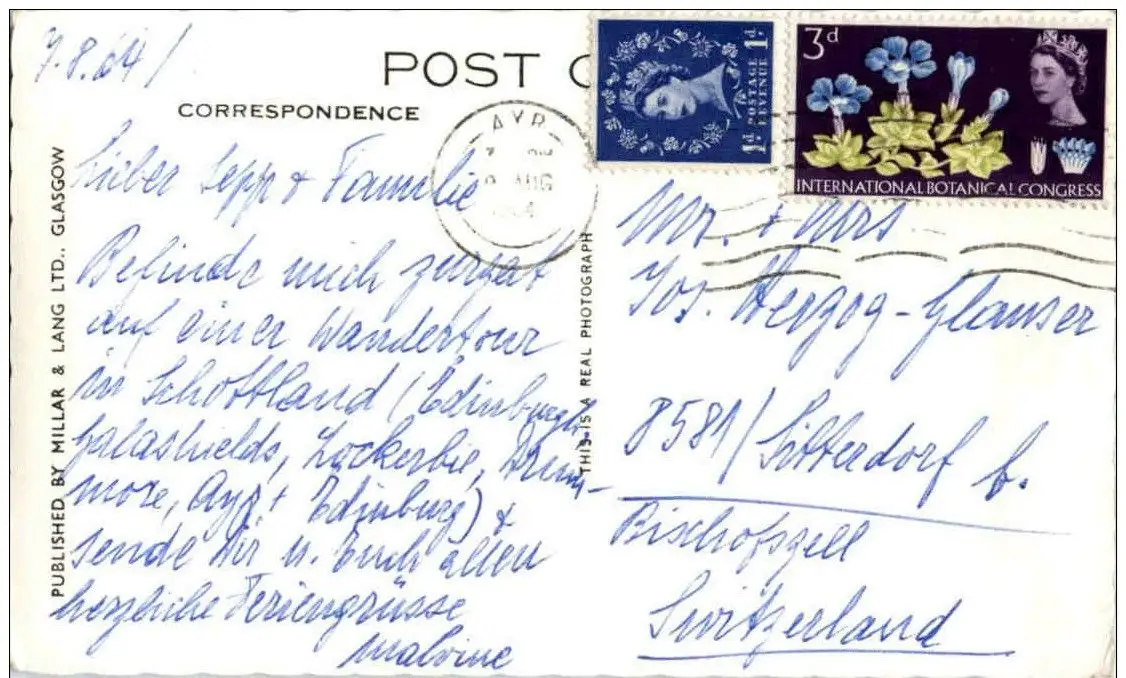 7.8.64/
POST C
CORRESPONDENCE
PUBLISHED BY MILLAR & LANG LTD., GLASGOW
Lieber Sepp + Familie
Befinde mich zurzeit
auf einer Wandertour
in Schottland (Edinburgh,
Galashields, Lockerbie, Drum-
more, Ayr + Edinburg) +
sende Dir u. Euch allen
herzliche Feriengrüsse
Malvine
THIS IS A REAL PHOTOGRAPH
AYR
AUG
1964
1d POSTAGE REVENUE 1d
3d
INTERNATIONAL BOTANICAL CONGRESS
Mr. + Mrs.
Jos. Herzog-Glauser
8581/Sitterdorf b.
Bischofszell
Switzerland